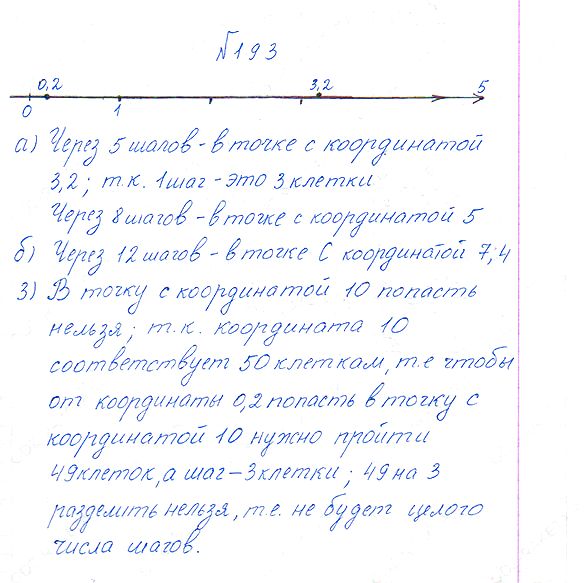 №193
0,2 3,2 5
0 1
а) Через 5 шагов - в точке с координатой
3,2; т.к. 1 шаг - это 3 клетки
Через 8 шагов - в точке с координатой 5
б) Через 12 шагов - в точке С координатой 7,4
3) В точку с координатой 10 попасть
нельзя; т.к. координата 10
соответствует 50 клеткам, т.е чтобы
от координаты 0,2 попасть в точку с
координатой 10 нужно пройти
49 клеток, а шаг - 3 клетки; 49 на 3
разделить нельзя, т.е. не будет целого
числа шагов.